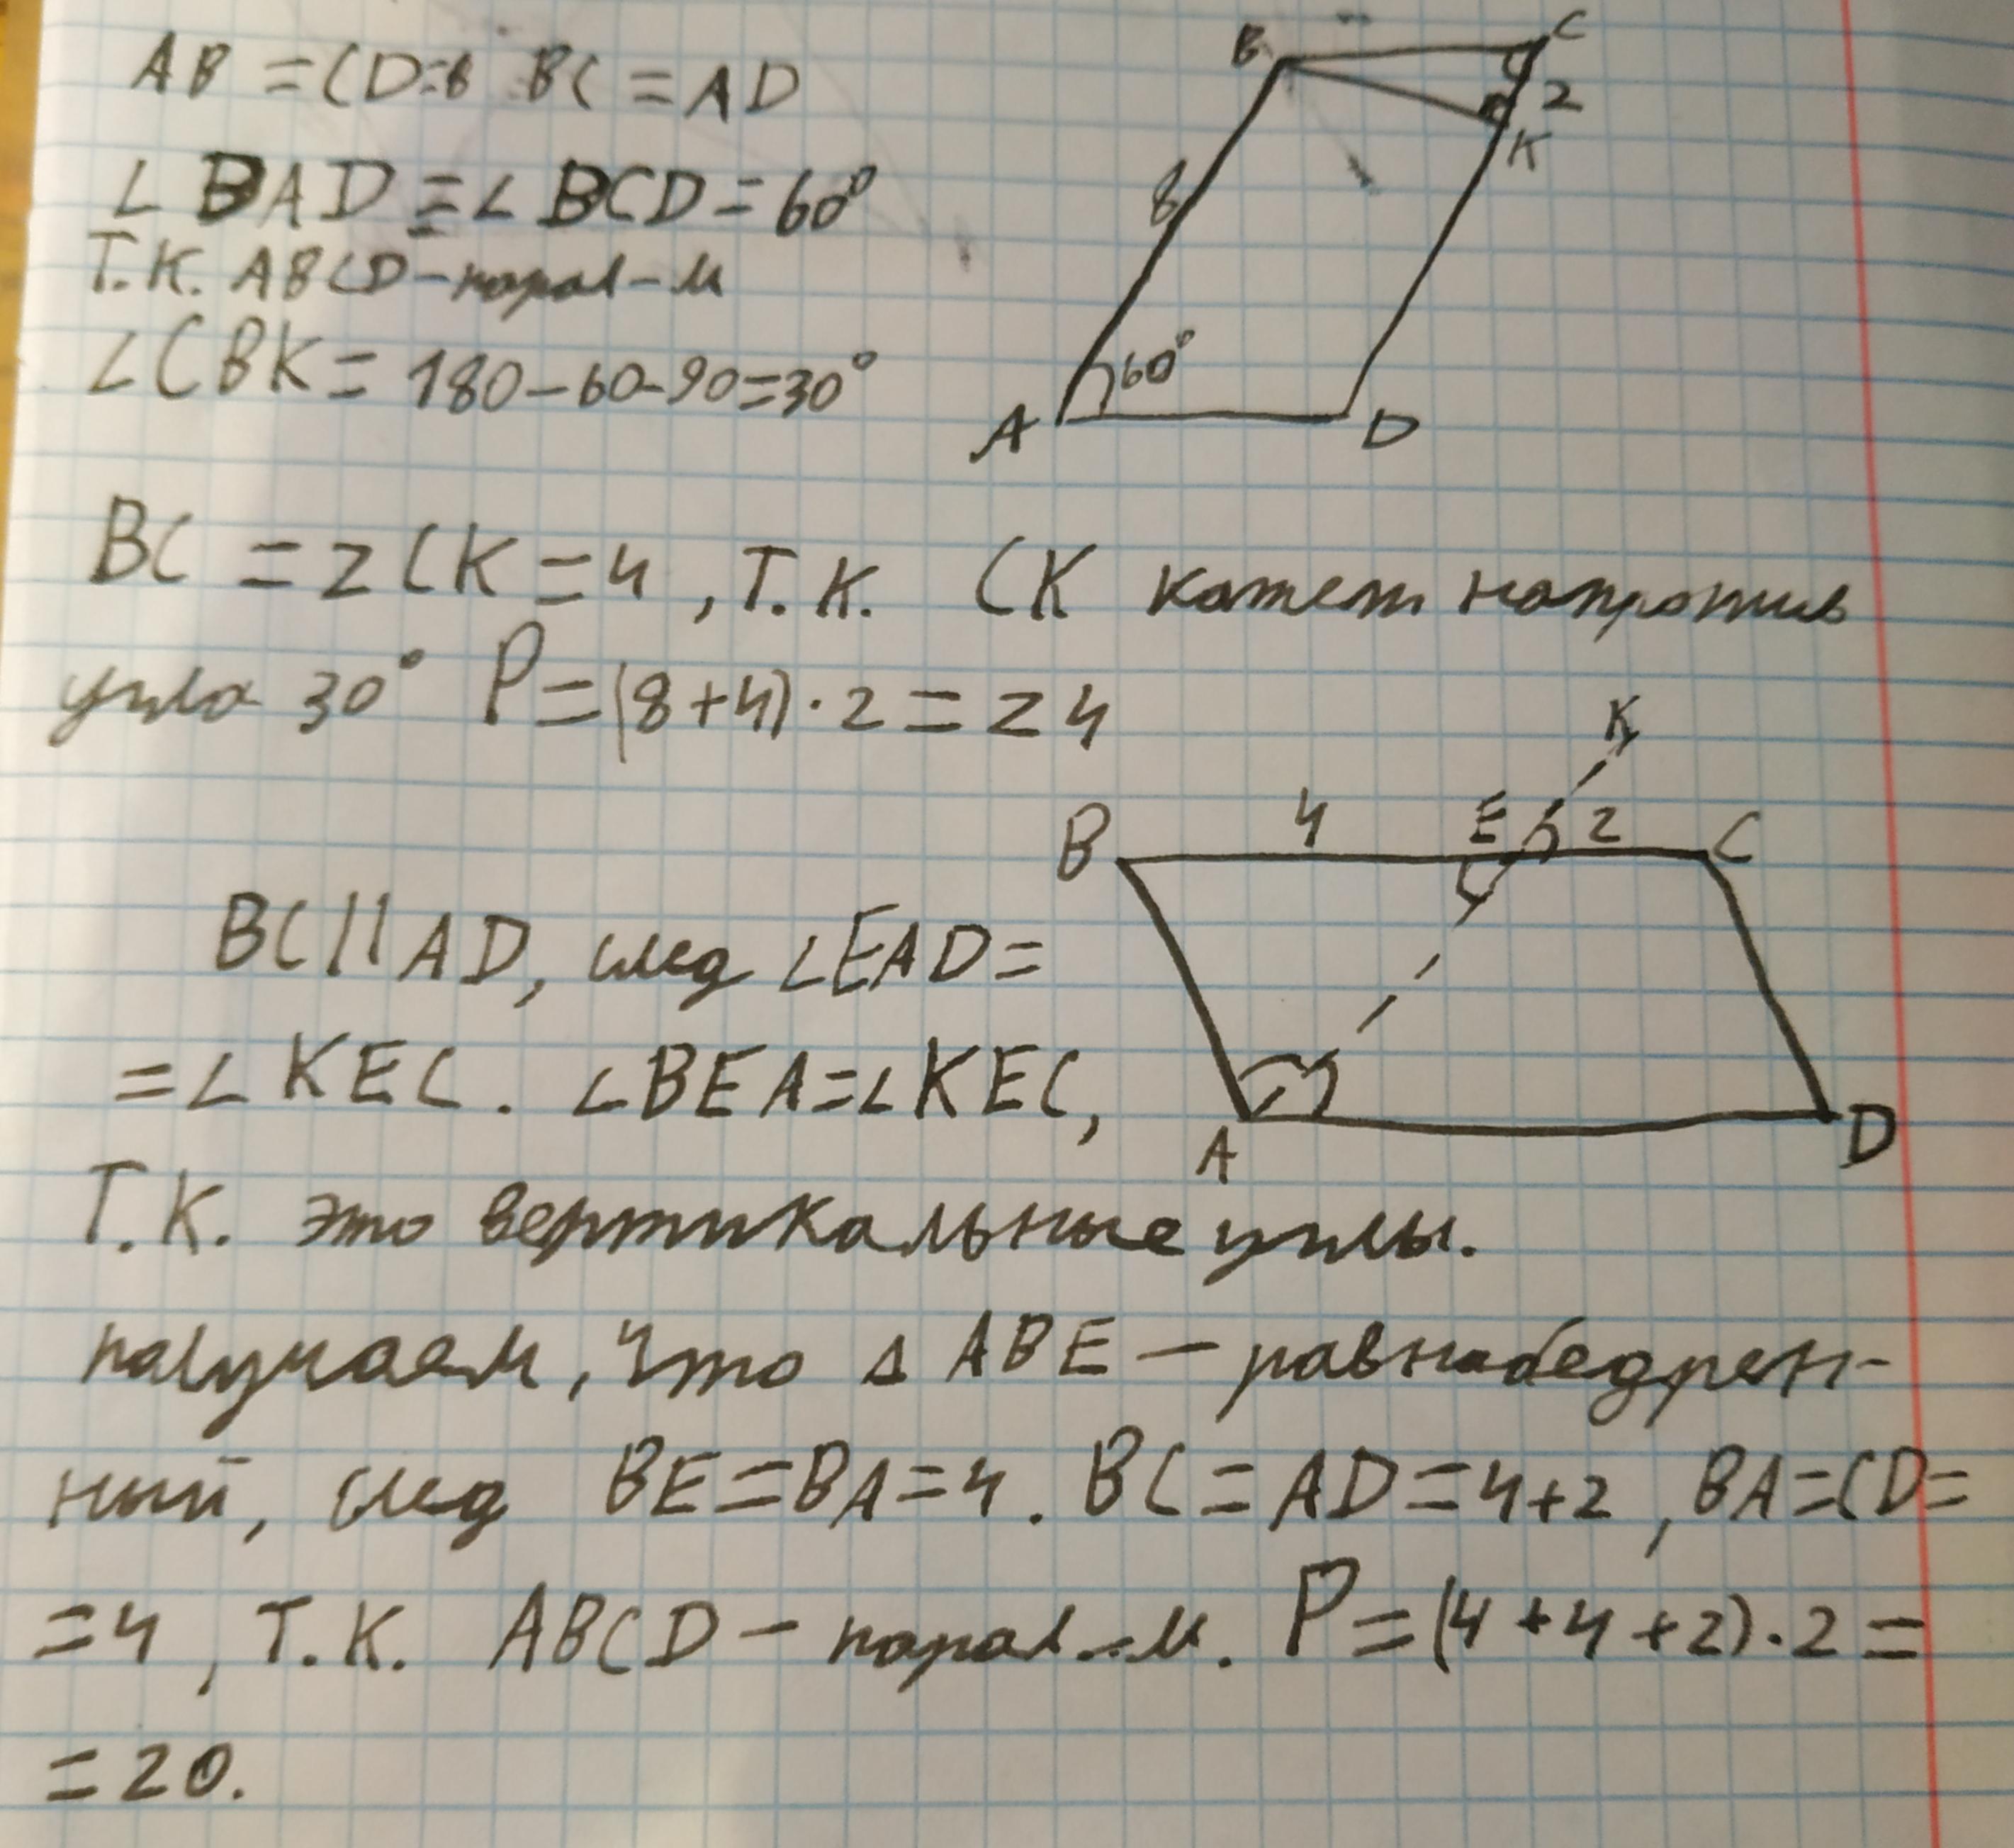 AB = CD = 8 BC = AD
∠ BAD = ∠ BCD = 60°
Т.К. ABCD - парал-м
∠CBK = 180 - 60 - 90 = 30°
B C 2 K 8 60° A D
BC = 2CK = 4, Т.К. CK катет напротив
угла 30° P = (8+4) · 2 = 24
K
B 4 E 2 C
BC || AD, след ∠EAD =
= ∠KEC. ∠BEA = ∠KEC,
A D
Т.К. это вертикальные углы.
получаем, что Δ ABE - равнобедрен-
ный, след BE = BA = 4. BC = AD = 4+2, BA = CD =
= 4, Т.К. ABCD - парал-м. P = (4 + 4 + 2) · 2 =
= 20.